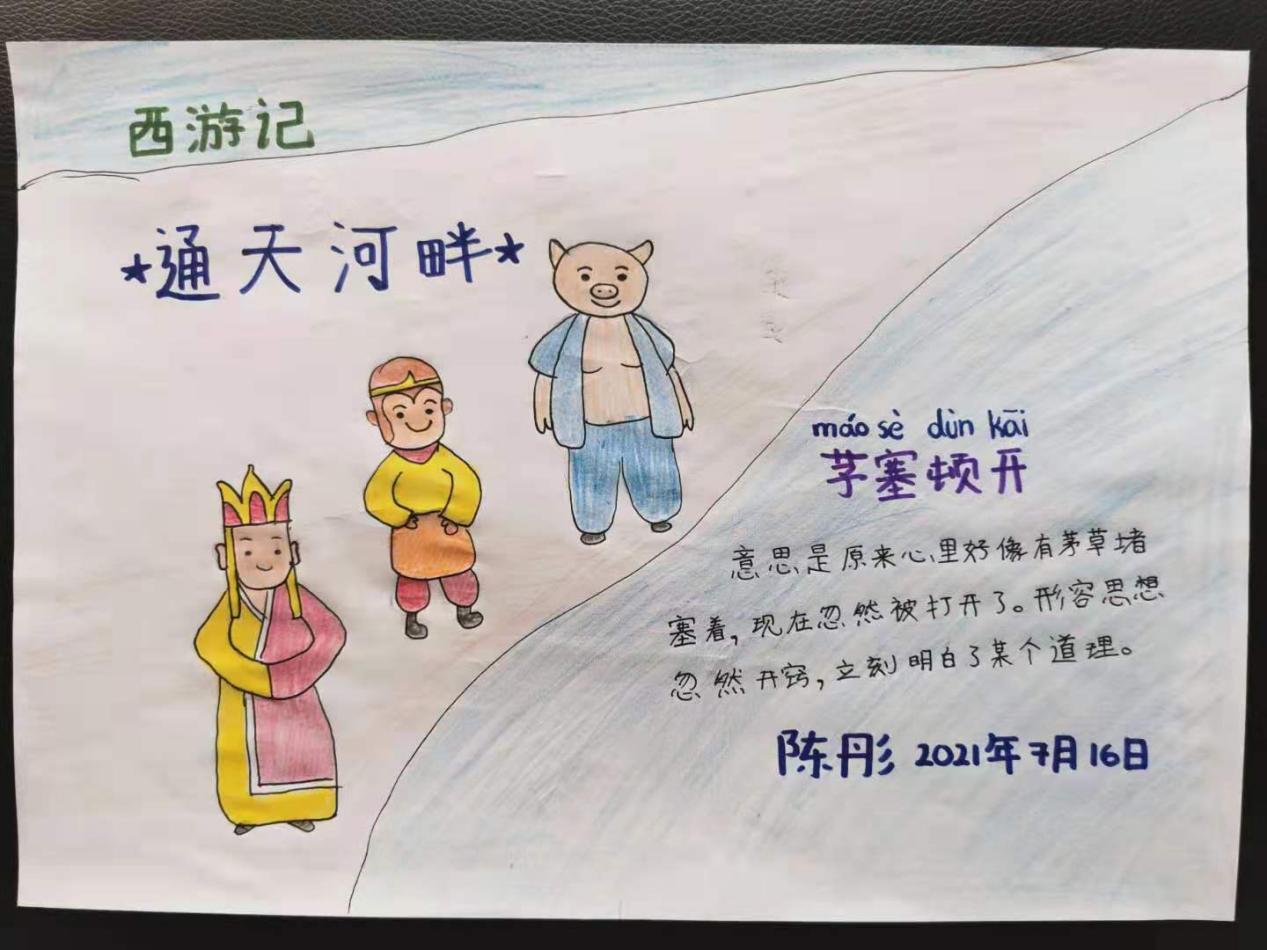 西游记
★通天河畔★
máo sè dùn kāi
茅塞顿开
意思是原来心里好像有茅草堵
塞着，现在忽然被打开了。形容思想
忽然开窍，立刻明白了某个道理。
陈彤 2021年7月16日